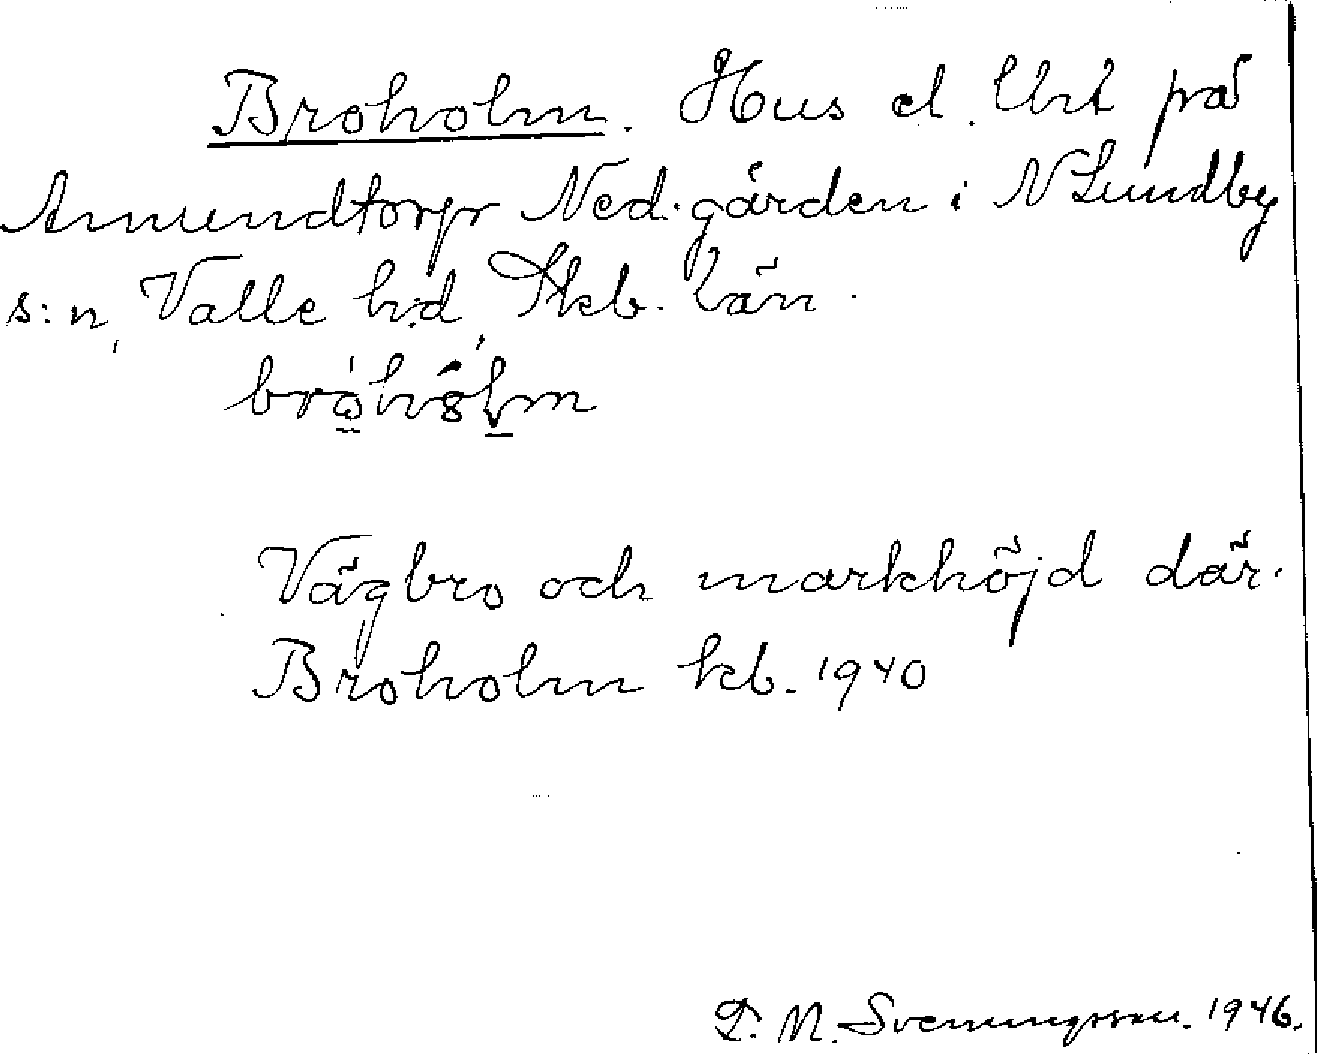 Broholm. Hus el. Uht på
Amundtorp Ned. gården i N Lundby
s:n, Valle h:d, Skb. län.
bro̤hólm
Vägbro och markhöjd där.
Broholm kb. 1940
D. M. Svenungsson. 1946.